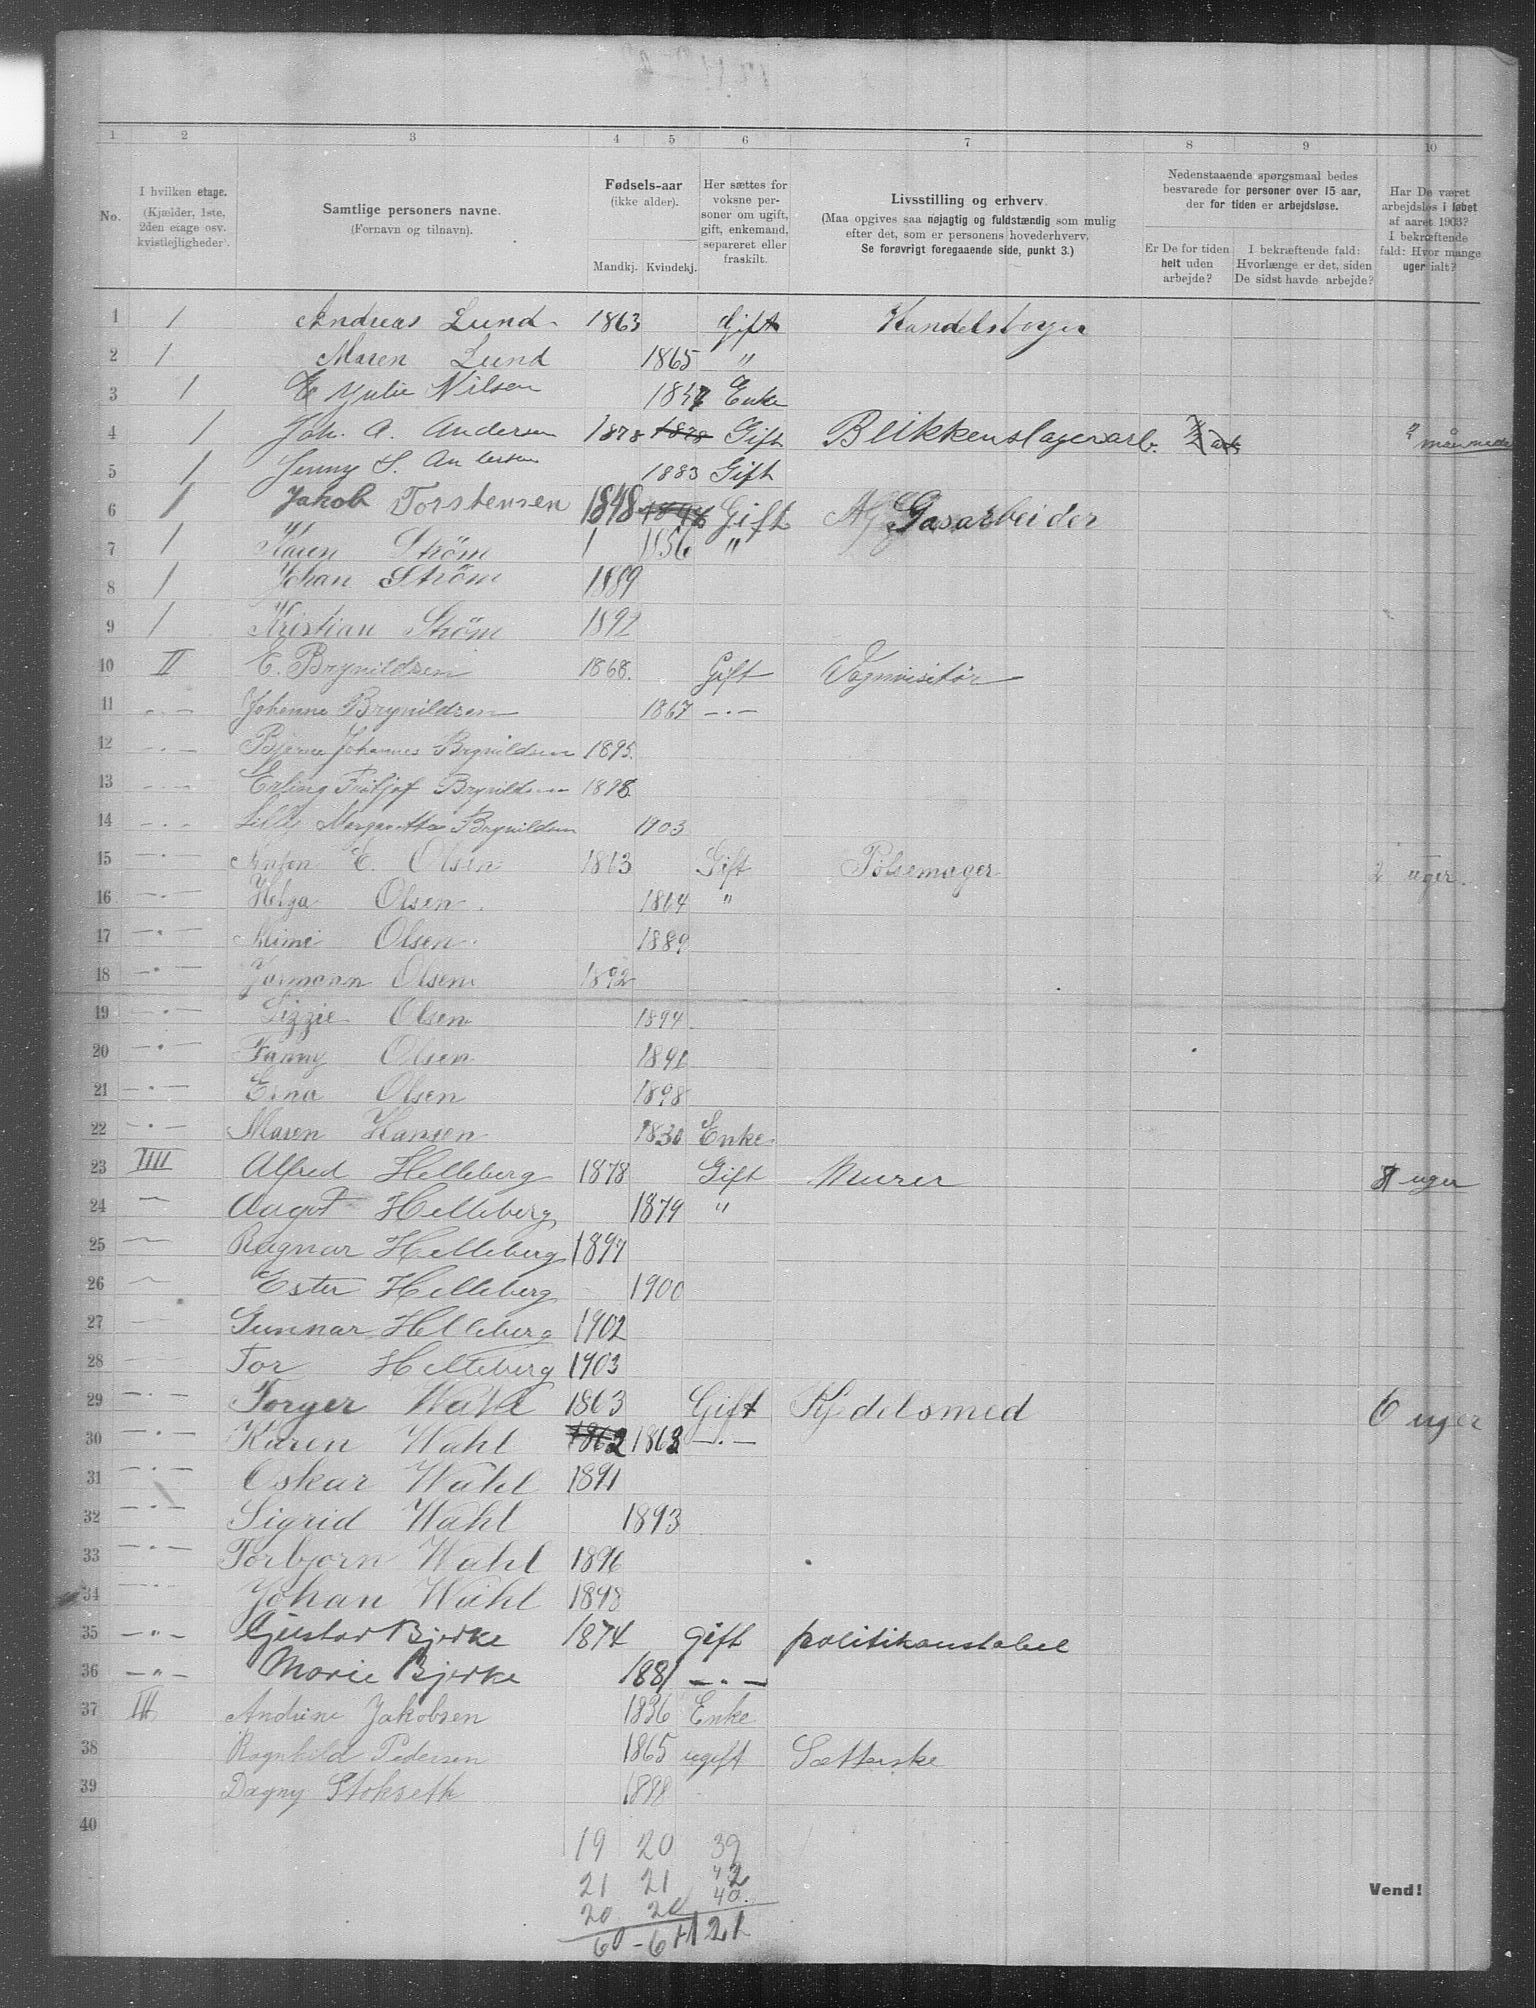 1 2 3 4 5 6 7 8 9 10
No.
I hvilken etage. (Kjælder, 1ste, 2den etage osv. kvistlejligheder).
Samtlige personers navne. (Fornavn og tilnavn).
Fødsels-aar (ikke alder). Mandkj. Kvindekj.
Her sættes for voksne personer om ugift, gift, enkemand, separeret eller fraskilt.
Livsstilling og erhverv. (Maa opgives saa nøjagtig og fuldstændig som mulig efter det, som er personens hovederhverv. Se forøvrigt foregaaende side, punkt 3.)
Nedenstaaende spørgsmaal bedes besvarede for personer over 15 aar, der for tiden er arbejdsløse.
Er De for tiden helt uden arbejde?
I bekræftende fald: Hvorlænge er det, siden De sidst havde arbejde?
Har De været arbejdsløs i løbet af aaret 1903? I bekræftende fald: Hvor mange uger ialt?
1 1 Andreas Lund 1863 Gift Handelsborger
2 1 Maren Lund 1865 "
3 1 E Julie Nilsen Enke
4 1 Joh. A. Andersen 1878 1878 Gift Blikkenslagerarb. måneder
5 1 Jenny S. Andersen 1883 Gift
6 1 Jakob Torstensen 1848 1848 Gift Gasarbeider
7 1 Karen Strøm 1 1856 "
8 1 Johan Strøm 1889
9 1 Kristian Strøm 1892
10 II E. Brynildsen 1868. Gift Vognvisitør
11 -"- Johanne Brynildsen 1867 -"-
12 -"- Bjarne Johannes Brynildsen 1895.
13 -"- Erling Fritjof Brynildsen 1898
14 -"- Lilly Margarettha Brynildsen 1903
15 -"- Anton E. Olsen 1863 Gift Pølsemager 2 uger.
16 -"- Helga Olsen. 1864 "
17 -"- Mimi Olsen. 1889
18 -"- Jormann Olsen 1892
19 -"- Lizzie Olsen 1894
20 -"- Fanny Olsen 1891
21 -"- Erna Olsen 1898
22 -"- Maren Hansen 1830 Enke
23 IIII Alfred Helleberg 1878 Gift Murer 8 uger
24 — Aagot Helleberg 1879 "
25 — Ragnar Helleberg 1897
26 — Ester Helleberg 1900
27 — Gunnar Helleberg 1902
28 — Tor Helleberg 1903
29 -"- Torger Wahl 1863 Gift Kjedelsmed 6 uger
30 -"- Karen Wahl 1862 1863 -"-
31 -"- Oskar Wahl 1891
32 -"- Sigrid Wahl 1893
33 -"- Torbjørn Wahl 1896
34 -"- Johan Wahl 1898
35 -"- Gustav Bjerke 1874 gift politikonstabel
36 -"- Marie Bjerke 1881 -"-
37 III Andrine Jakobsen 1836 Enke
38 Ragnhild Pedersen 1865 ugift Sætterske
39 Dagny Stokseth 1898
40
19 20 39
21 21 42
20 20 40.
60 - 61 121
Vend!